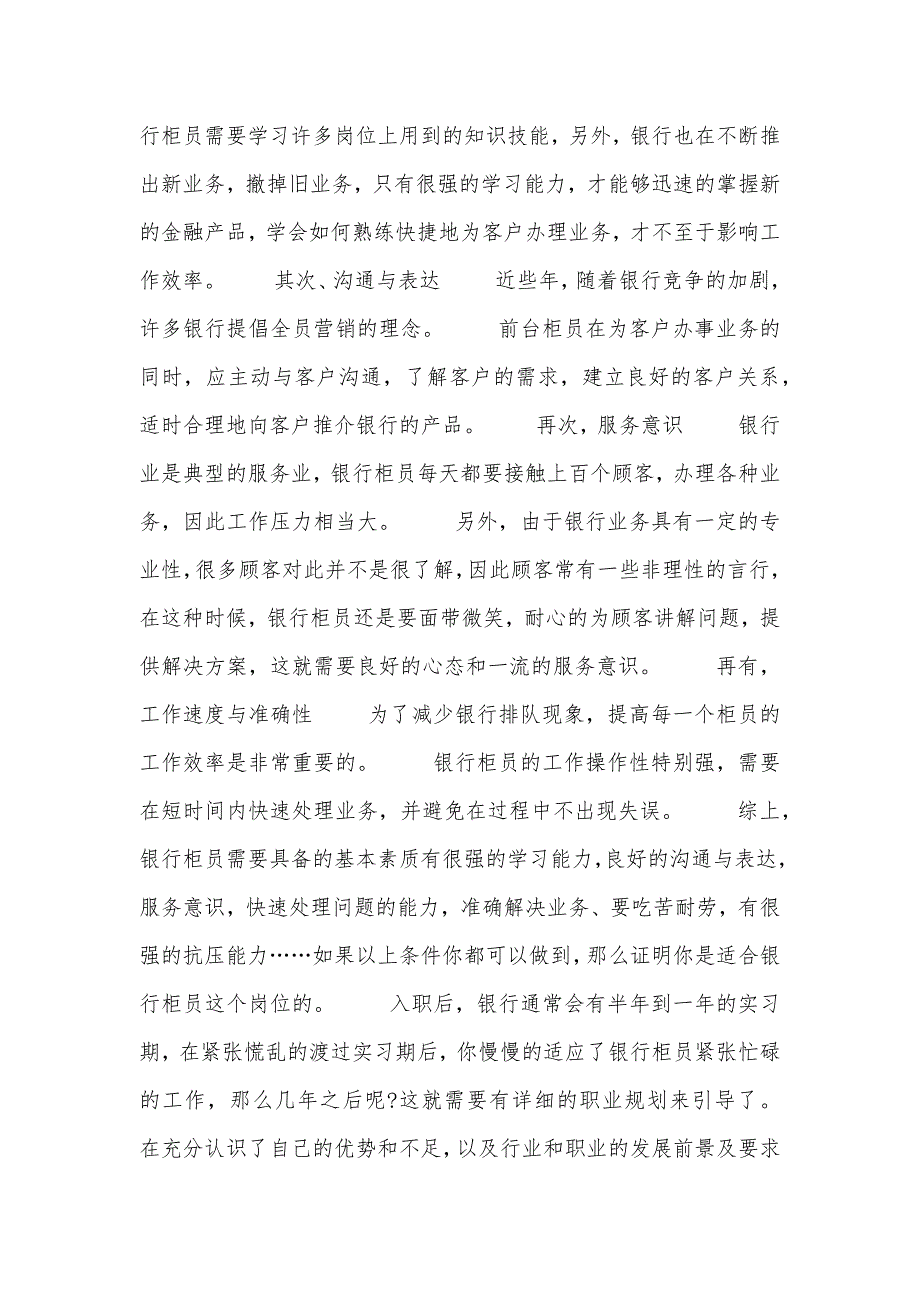 行柜员需要学习许多岗位上用到的知识技能，另外，银行也在不断推
出新业务，撤掉旧业务，只有很强的学习能力，才能够迅速的掌握新
的金融产品，学会如何熟练快捷地为客户办理业务，才不至于影响工
作效率。　　其次、沟通与表达　　近些年，随着银行竞争的加剧，
许多银行提倡全员营销的理念。　　前台柜员在为客户办事业务的
同时，应主动与客户沟通，了解客户的需求，建立良好的客户关系，
适时合理地向客户推介银行的产品。　　再次，服务意识　　银行
业是典型的服务业，银行柜员每天都要接触上百个顾客，办理各种业
务，因此工作压力相当大。　　另外，由于银行业务具有一定的专
业性，很多顾客对此并不是很了解，因此顾客常有一些非理性的言行，
在这种时候，银行柜员还是要面带微笑，耐心的为顾客讲解问题，提
供解决方案，这就需要良好的心态和一流的服务意识。　　再有，
工作速度与准确性　　为了减少银行排队现象，提高每一个柜员的
工作效率是非常重要的。　　银行柜员的工作操作性特别强，需要
在短时间内快速处理业务，并避免在过程中不出现失误。　　综上，
银行柜员需要具备的基本素质有很强的学习能力，良好的沟通与表达，
服务意识，快速处理问题的能力，准确解决业务、要吃苦耐劳，有很
强的抗压能力……如果以上条件你都可以做到，那么证明你是适合银
行柜员这个岗位的。　　入职后，银行通常会有半年到一年的实习
期，在紧张慌乱的渡过实习期后，你慢慢的适应了银行柜员紧张忙碌
的工作，那么几年之后呢?这就需要有详细的职业规划来引导了。
在充分认识了自己的优势和不足，以及行业和职业的发展前景及要求